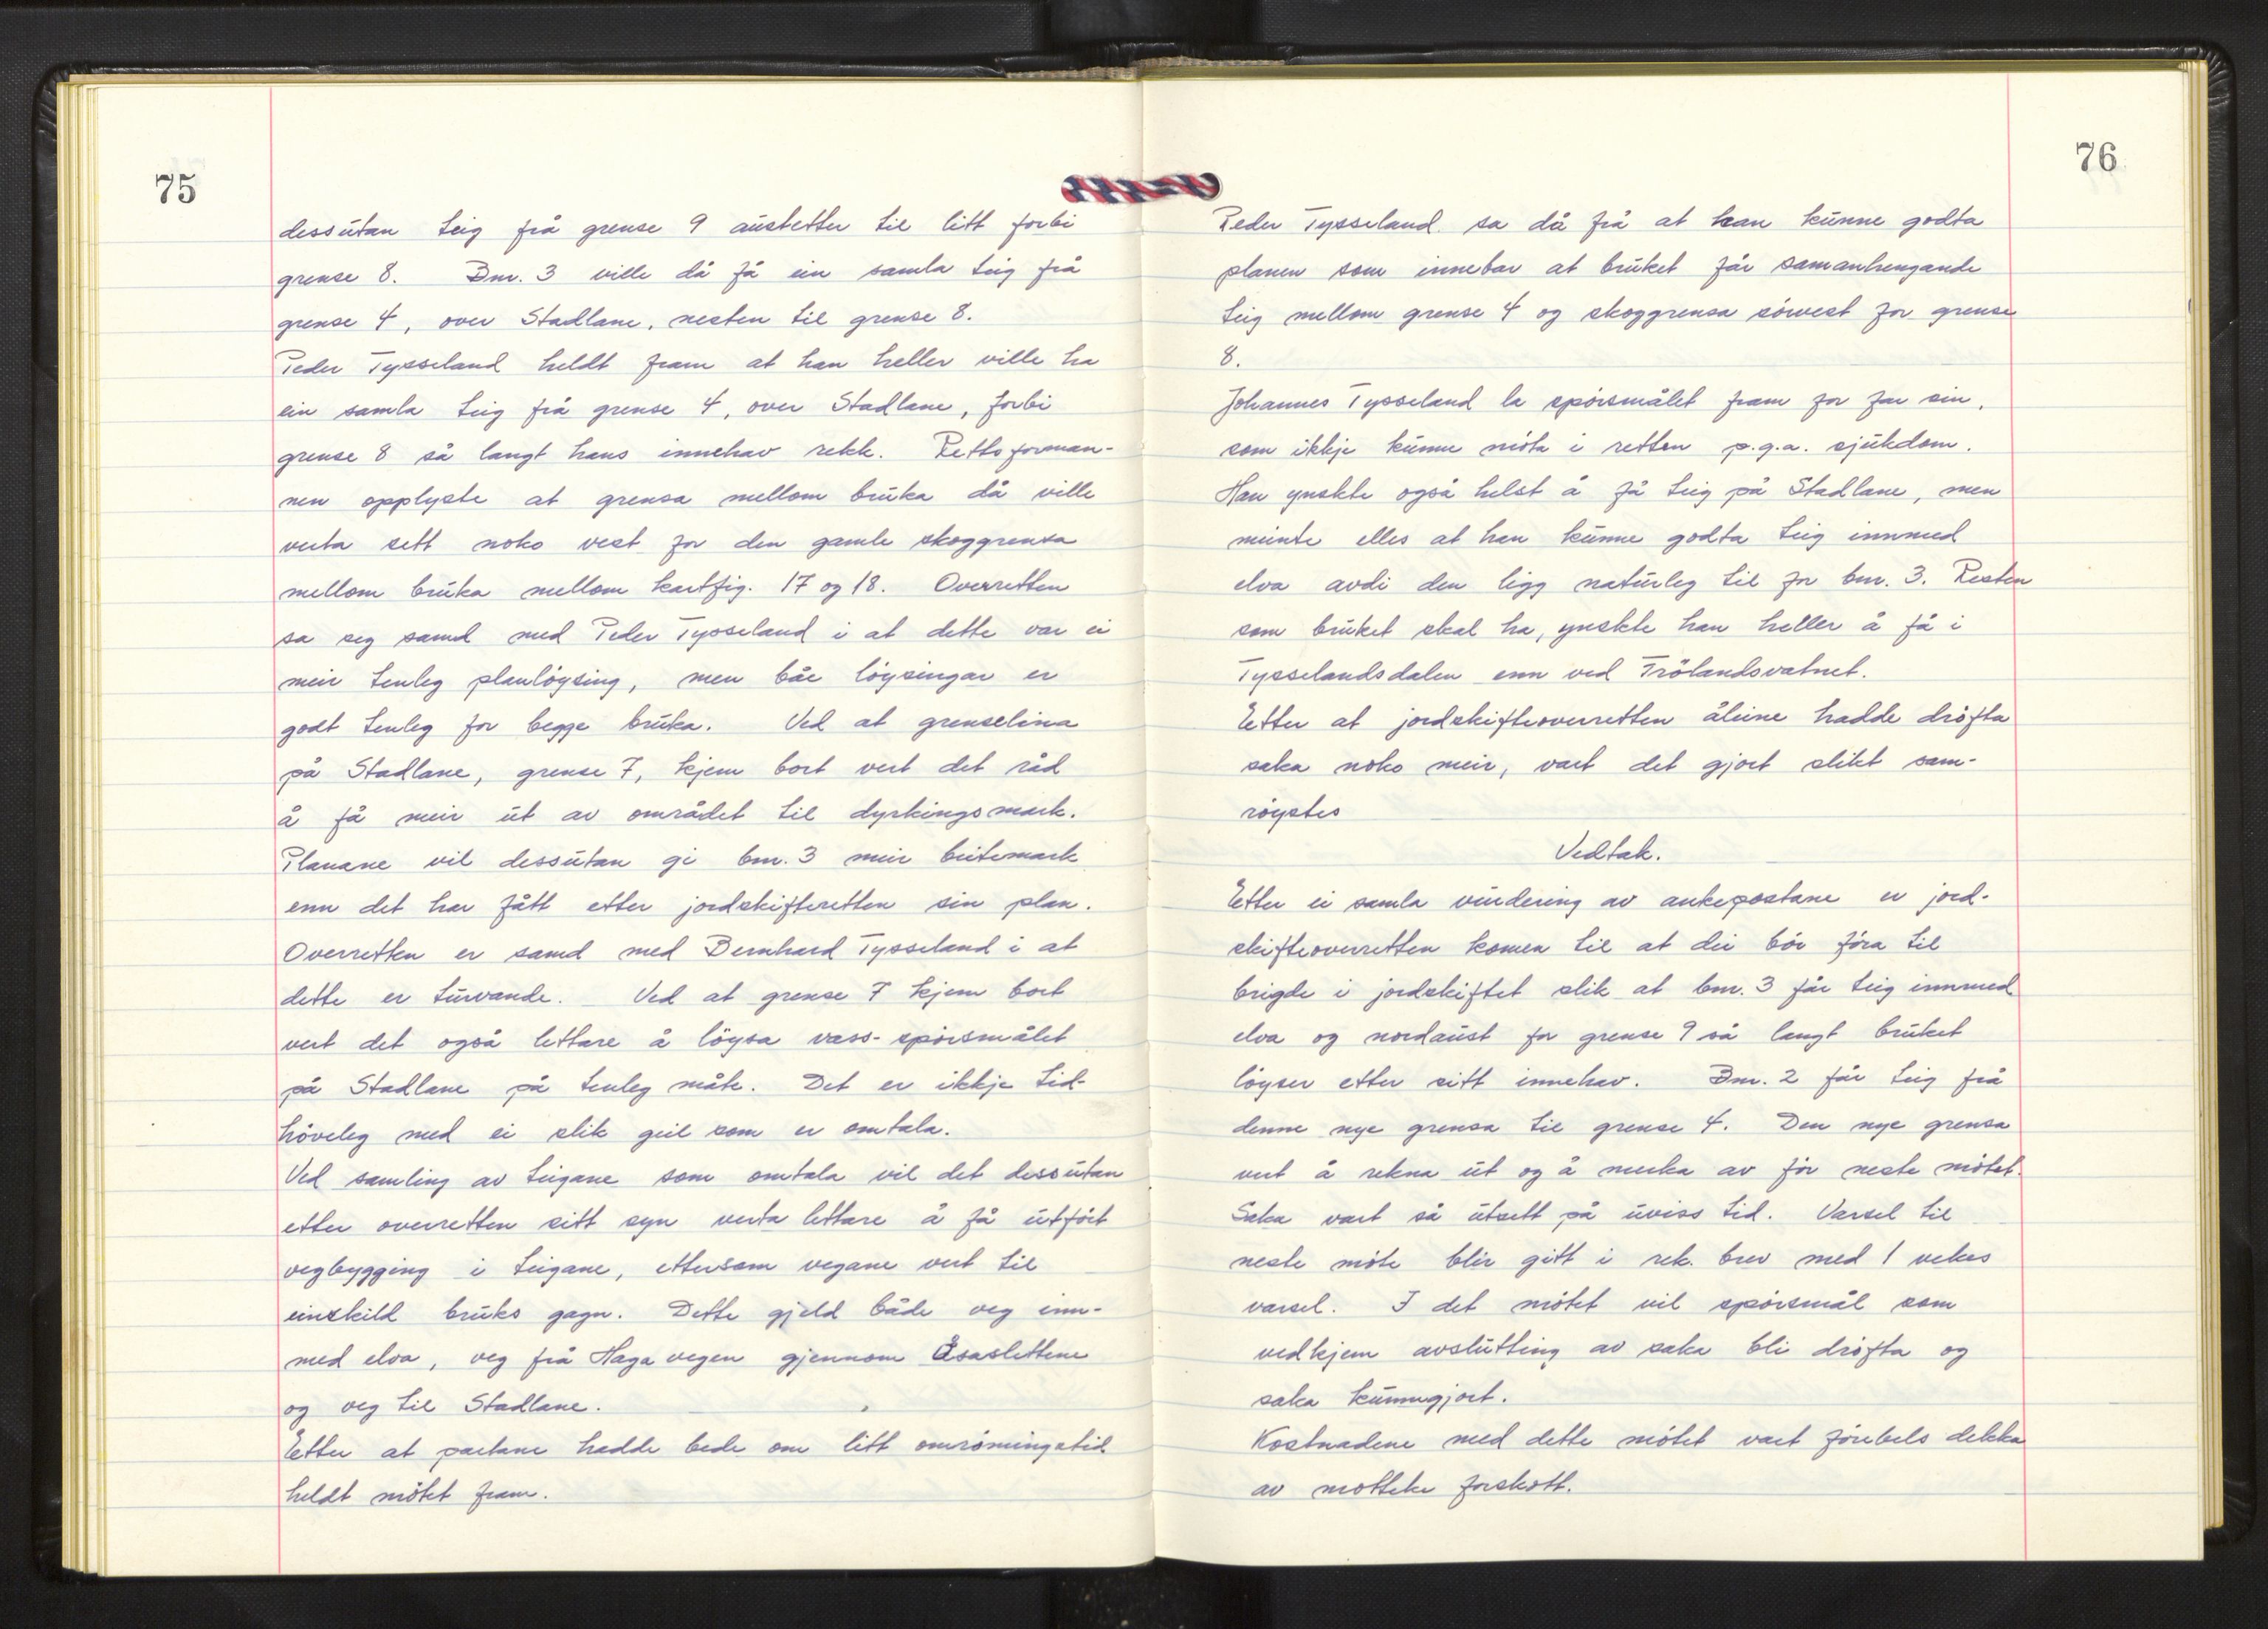 75
dessutan teig frå grense 9 austetter til litt forbi
grense 8. Bnr. 3 ville då få ein samla teig frå
grense 4, over Stadlane, nesten til grense 8.
Peder Tysseland heldt fram at han heller ville ha
ein samla teig frå grense 4, over Stadlane, forbi
grense 8 så langt hans innehav rekk. Rettsforman-
nen opplyste at grensa mellom bruka då ville
verta sett noko vest for den gamle skoggrensa
mellom bruka mellom kartfig. 17 og 18. Overretten
sa seg samd med Peder Tysseland i at dette var ei
meir tenleg planlöysing, men båe löysingar er
godt tenleg for begge bruka. Ved at grenselina
på Stadlane, grense 7, kjem bort vert det råd
å få meir ut av området til dyrkingsmark.
Planane vil dessutan gi bnr. 3 meir beitemark
enn det har fått etter jordskifteretten sin plan.
Overretten er samd med Bernhard Tysseland i at
dette er turvande. Ved at grense 7 kjem bort
vert det også lettare å löysa vass-spörsmålet
på Stadlane på tenleg måte. Det er ikkje tid-
höveleg med ei slik geil som er omtala.
Ved samling av teigane som omtala vil det dessutan
etter overretten sitt syn verta lettare å få utfört
vegbygging i teigane, ettersom vegane vert til
einskild bruks gagn. Dette gjeld både veg inn-
med elva, veg frå Hagavegen gjennom Åsaslettene
og veg til Stadlane.
Etter at partane hadde bede om litt omrömingstid
heldt mötet fram.
76
Peder Tysseland sa då frå at han kunne godta
planen som innebar at bruket får samanhengande
teig mellom grense 4 og skoggrensa sörvest for grense
8.
Johannes Tysseland la spörsmålet fram for far sin,
som ikkje kunne möta i retten p.g.a. sjukdom.
Han ynskte også helst å få teig på Stadlane, men
meinte elles at han kunne godta teig innmed
elva avdi den ligg naturleg til for bnr. 3. Resten
som bruket skal ha, ynskte han heller å få i
Tysselandsdalen enn ved Trölandsvatnet.
Etter at jordskifteoverretten åleine hadde dröfta
saka noko meir, vart det gjort slikt sam-
röystes
Vedtak.
Etter ei samla vurdering av ankepostane er jord-
skifteoverretten komen til at dei bör föra til
brigde i jordskiftet slik at bnr. 3 får teig innmed
elva og nordaust for grense 9 så langt bruket
löyser etter sitt innehav. Bnr. 2 får teig frå
denne nye grensa til grense 4. Den nye grensa
vert å rekna ut og å merka av för neste mötet.
Saka vart så utsett på uviss tid. Varsel til
neste möte blir gitt i rek. brev med 1 vekes
varsel. I det mötet vil spörsmål som
vedkjem avslutting av saka bli dröfta og
saka kunngjort.
Kostnadene med dette mötet vart förebels dekka
av motteke forskott.